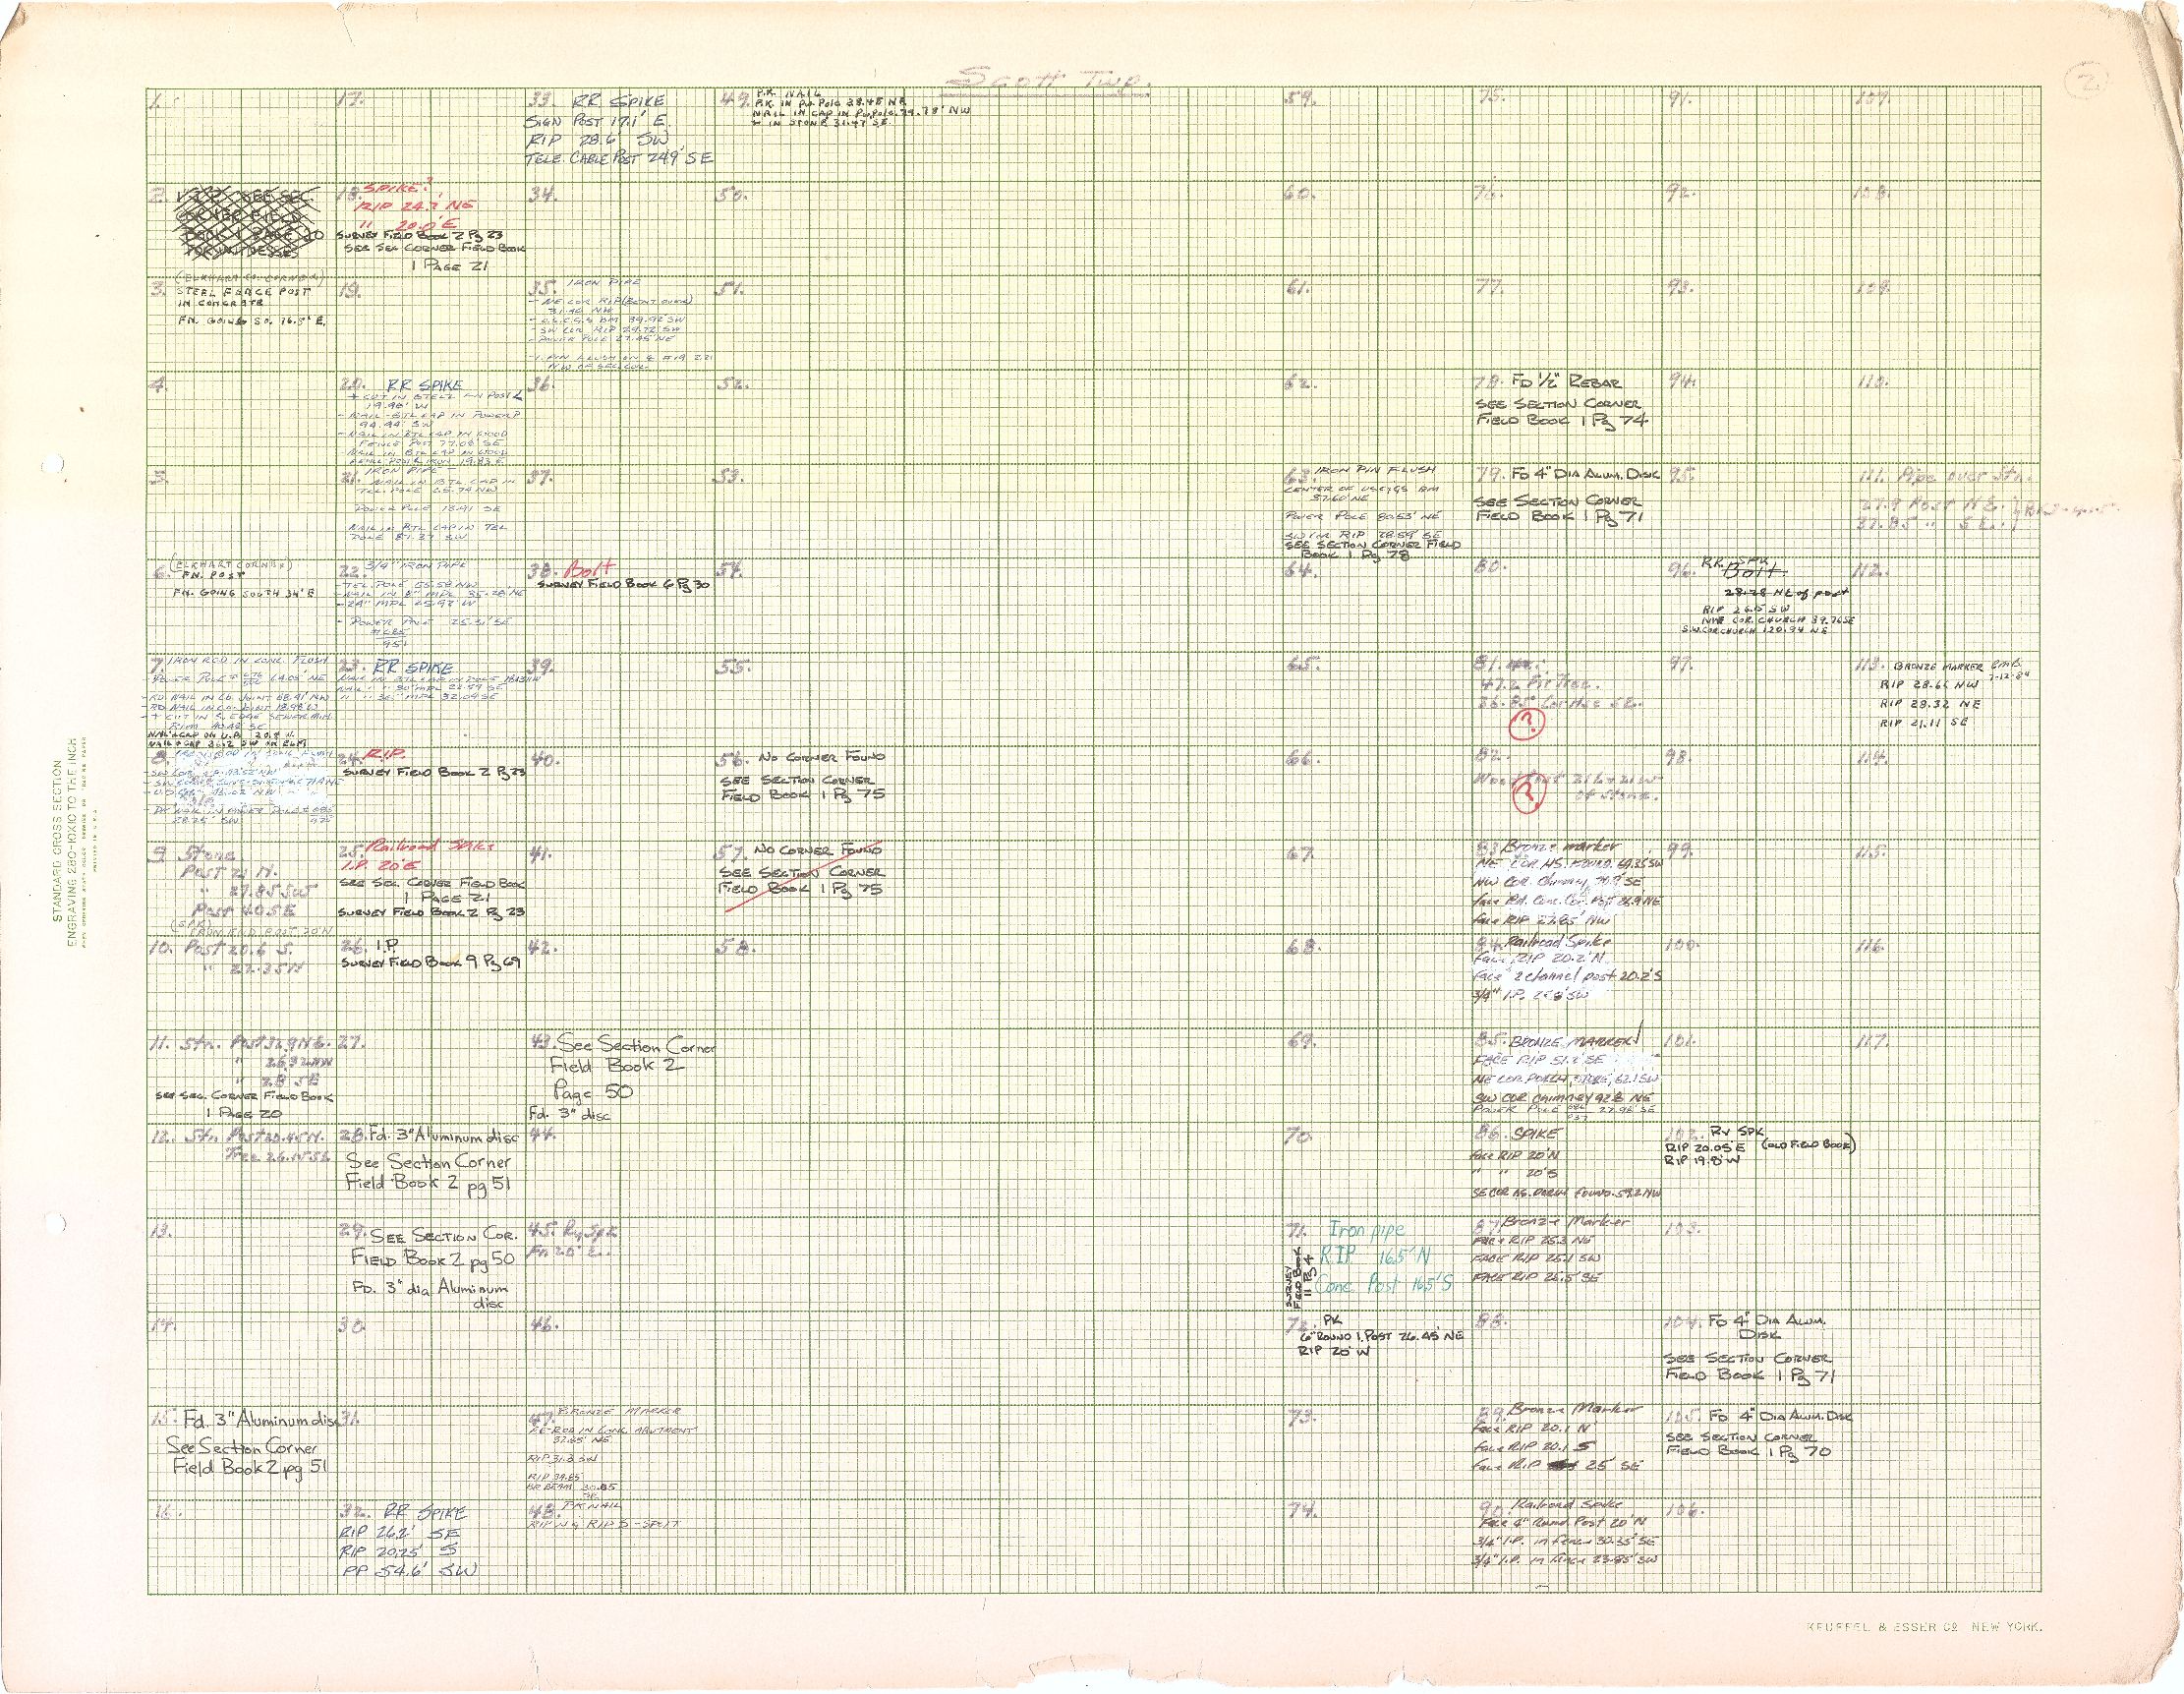 Scott Twp.
2
1.
2.
3. (ELKHART CO. CORNER)
STEEL FENCE POST
IN CONCRETE
FN. GOING SO. 16.5' E.
4.
5.
6. (ELKHART CORNER)
FN. POST
FN. GOING SOUTH 34' E
7. IRON ROD IN CONC. FLUSH
8.
9. Stone
Post 21 N.
" 27.85 SW
Post 40 SE
10. Post 20.6 S.
" 27.35 N
11. Stn. Post 32.9 NE.
" 26.32 NW
" 28 SE
SEE SEC. CORNER FIELD BOOK
1 PAGE 20
12. Stn. Post 20.45 N.
Tree 26.1 SE
13.
14.
15. Fd. 3" Aluminum disc
See Section Corner
Field Book 2 pg 51
16.
17.
18. SPIKE?
RIP 24.2' NE
" 20.0' E
SURVEY FIELD BOOK 2 Pg 23
SEE SEC CORNER FIELD BOOK
1 PAGE 21
19.
20. RR SPIKE
+ CUT IN STEEL FN POST
19.98' W
- NAIL - BTL CAP IN POWER P
94.94' SW
- NAIL IN BTL CAP IN WOOD
FENCE POST 77.06' SE
21. IRON PIPE -
NAIL IN BTL CAP IN
POWER POLE 18.91 SE
NAIL IN BTL CAP IN TEL
POLE 87.37 SW
22. 3/4" IRON PIPE
- TEL. POLE 55.58 NW
- NAIL IN 8" MPL 35.28 NE
- 24" MPL 25.92' W
- POWER POLE 25.31' SE
23. RR SPIKE
24. RIP
SURVEY FIELD BOOK 2 Pg 23
25. Railroad Spike
I.P. 20' E
SEE SEC. CORNER FIELD BOOK
1 PAGE 21
SURVEY FIELD BOOK 2 Pg 23
26. I.P.
SURVEY FIELD BOOK 9 Pg 69
27.
28. Fd. 3" Aluminum disc
See Section Corner
Field Book 2 pg 51
29. SEE SECTION COR.
FIELD BOOK 2 pg 50
FD. 3" dia Aluminum
disc
30.
31.
32. RR SPIKE
RIP 26.2' SE
RIP 20.25' S
PP 54.6' SW
33. RR SPIKE
SIGN POST 17.1' E.
RIP 28.6' SW
TELE. CABLE POST 24.9' SE
34.
35. IRON PIPE
- NE COR RIP (BENT OVER)
31.40 NW
- POWER POLE 27.45' NE
36.
37.
38. Bolt
SURVEY FIELD BOOK 6 Pg 30
39.
40.
41.
42.
43. See Section Corner
Field Book 2
Page 50
Fd. 3" disc
44.
45. Ry. Spk
Fn 20' E.
46.
47. BRONZE MARKER
RE-ROD IN CONC. ABUTMENT
RIP 31.3 SW
48. PK NAIL
RIP W & RIP S - SPLIT
49. P.K. NAIL
P.K. IN P.W. POLE 38.48 NE
NAIL IN CAP IN PW. POLE. 74.78' NW
+ IN STONE 31.47' SE.
50.
51.
52.
53.
54.
55.
56. NO CORNER FOUND
SEE SECTION CORNER
FIELD BOOK 1 Pg 75
57. NO CORNER FOUND
SEE SECTION CORNER
FIELD BOOK 1 Pg 75
58.
59.
60.
61.
62.
63. IRON PIN FLUSH
CENTER OF USC&GS BM
37.60' NE
POWER POLE 80.53' NE
SW COR RIP 28.59' SE
SEE SECTION CORNER FIELD
BOOK 1 Pg 78
64.
65.
66.
67.
68.
69.
70.
71. Iron pipe
RIP 16.5' N
Conc. Post 16.5' S
SURVEY
FIELD BOOK
11 Pg 4
72. PK
6" ROUND I. POST 26.45' NE
RIP 20' W
73.
74.
75.
76.
77.
78. FD 1/2" REBAR
SEE SECTION CORNER
FIELD BOOK 1 Pg 74
79. FD 4" DIA ALUM. DISK
SEE SECTION CORNER
FIELD BOOK 1 Pg 71
80.
81.
47.2 Fir Tree.
?
82.
of stone.
?
83. Bronze marker
NE COR. HS. FOUND. 69.35 SW
NW COR. Chimney, 70.9' SE
face Rd. Conc. Cor. Post 26.9 NE
face RIP 27.85' NW
84. Railroad Spike
face, RIP 20.2' N
face 2 channel post 20.2' S
3/4" I.P. 25.8' SW
85. BRONZE MARKER
FACE RIP 51.2' SE
NE COR. PORCH, STORE, 62.1 SW
SW COR chimney 92.8 NE
86. SPIKE
face RIP 20' N
" " 20' S
SE COR HS. PORCH FOUND. 59.2 NW
87. Bronze Marker
FACE RIP 25.3 NE
FACE RIP 25.1 SW
FACE RIP 25.5' SE
88.
89. Bronze Marker
face RIP 20.1 N
face RIP 20.1 S
face RIP 25' SE
90. Railroad Spike
Face 4" Round Post 20' N
3/4" I.P. in fence 30.35' SE
3/4" I.P. in fence 23.85' SW
91.
92.
93.
94.
95.
96. RR. SPK
Bolt.
28.28 NE of post
RIP 26.5 SW
NW COR. CHURCH 39.76 SE
S.W. COR CHURCH 120.94 NE
97.
98.
99.
100.
101.
102. RY SPK
RIP 20.05' E (OLD FIELD BOOK)
RIP 19.8' W
103.
104. FD 4" DIA ALUM.
DISK
SEE SECTION CORNER
FIELD BOOK 1 Pg 71
105. FD 4" DIA ALUM. DISK
SEE SECTION CORNER
FIELD BOOK 1 Pg 70
106.
107.
108.
109.
110.
111. Pipe over Stn.
27.9 Post NE.
27.85 " SE.
112.
113. BRONZE MARKER
RIP 28.66 NW
RIP 28.32 NE
RIP 21.11 SE
114.
115.
116.
117.
STANDARD CROSS SECTION
ENGRAVING 280-10X10 TO THE INCH
KEUFFEL & ESSER CO. NEW YORK.